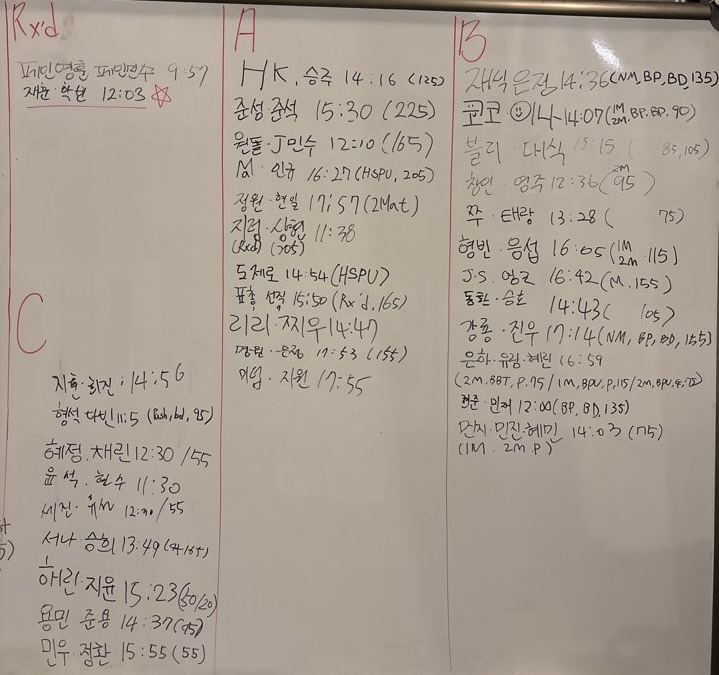 Rx'd
페인영훈 페인민수 9:57
재훈 학현 12:03 ☆
A
HK. 승주 14:16 (125)
준성·준석 15:30 (225)
원돌·J민수 12:10 (165)
인규 16:27 (HSPU, 205)
정원·현일 17:57 (2Mat)
지렁·상현 11:38
(Rxd) (205)
도제로 14:54 (HSPU)
표총 선직 15:50 (Rx'd, 165)
리리·찌우 14:47
17:53 (155)
지원 17:55
B
재식 은정 14:36 (NM, BP, BD, 135)
코코·☺나 14:07 (1M 2M, BP, BP, 90)
블리·대식 15:15 ( 85, 105)
창인·영주 12:36 (2M 95)
쭈·태랑 13:28 ( 75)
형빈·음섭 16:05 (1M 2M 115)
J.S. 16:42 (M. 155)
동환·승호 14:43 ( 105)
강룡·진우 17:14 (NM, BP, BD, 155)
은하·유림·혜린 16:59
(2M. BBT, P. 75 / 1M, BPU, P, 115 / 2M, BPU,
현준·민재 12:00 (BP, BD, 135)
먼지·민진·혜민 14:03 (75)
(1M. 2M P)
C
지훈·희진: 14:56
형석 다빈 11:5 (Push, bd, 95)
혜정. 채린 12:30 /55
윤석. 현수 11:30
세진· 12:30 /55
서나·승희 13:49
해린·지윤 15:23 (30/20)
용민 준용 14:37 (95)
민우·정환 15:55 (55)